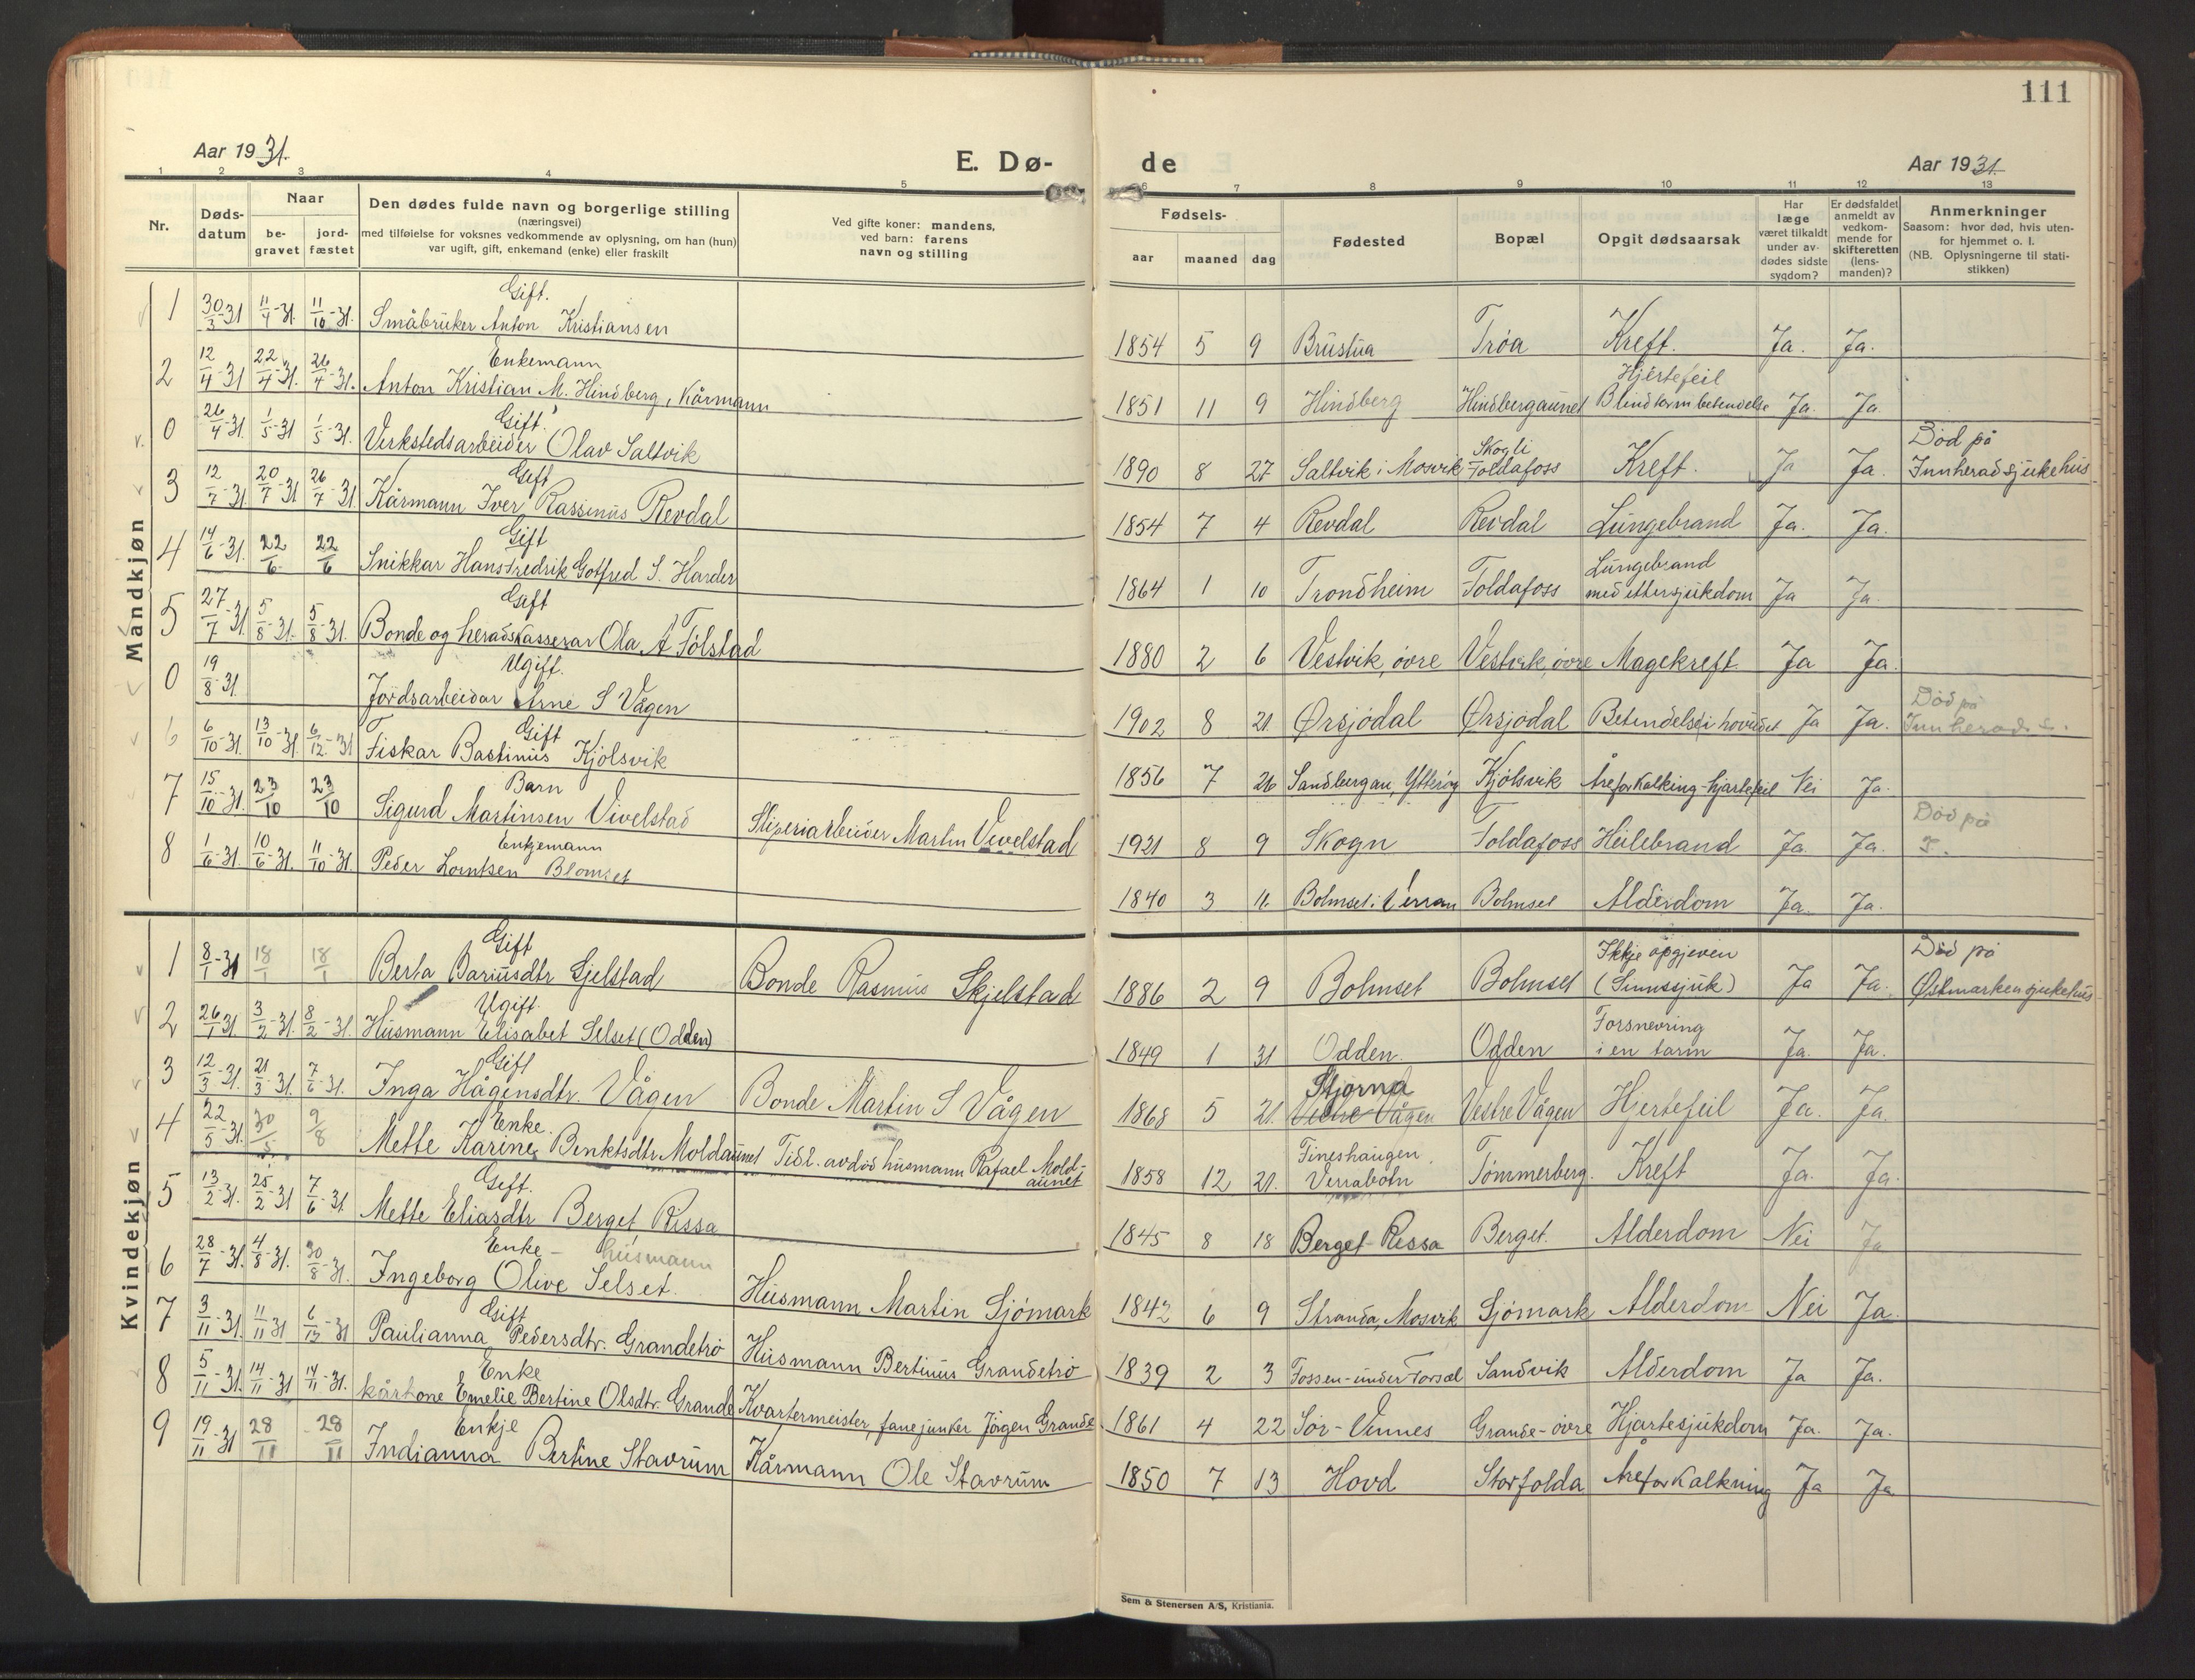 111
Aar 1931.
E. Dø-
de
Aar 1931.
1 2 3 4 5 6 7 8 9 10 11 12 13
Nr.
Døds-
datum
Naar
be-
gravet
jord-
fæstet
Den dødes fulde navn og borgerlige stilling
(næringsvei)
med tilføielse for voksnes vedkommende av oplysning, om han (hun)
var ugift, gift, enkemand (enke) eller fraskilt
Ved gifte koner: mandens,
ved barn: farens
navn og stilling
Fødsels-
aar maaned dag
Fødested
Bopæl
Opgit dødsaarsak
Har
læge
været tilkaldt
under av-
dødes sidste
sygdom?
Er dødsfaldet
anmeldt av
vedkom-
mende for
skifteretten
(lens-
manden)?
Anmerkninger
Saasom: hvor død, hvis uten-
for hjemmet o. l.
(NB. Oplysningerne til stati-
stikken)
Mandkjøn
Gift.
1 30/3-31 11/4-31. 11/10-31. Småbruker Anton Kristiansen 1854 5 9 Brustua Trøa Kreft. Ja. Ja.
Enkemann Hjertefeil
2 12/4-31 22/4-31. 26/4-31. Anton Kristian M. Hindberg, Kårmann 1851 11 9 Hindberg Hindbergaunet Blindtarmbetendelse Ja. Ja.
Gift. Skogli Død på
0 26/4-31. 1/5-31 1/5-31. Verkstedsarbeider Olav Saltvik 1890 8 27 Saltvik i Mosvik Foldafoss Kreft. Ja Ja. Innheradsjukehus
Gift
3 12/7-31. 20/7-31 26/7-31. Kårmann Iver Rassinus Revdal 1854 7 4 Revdal Revdal Lungebrand Ja. Ja.
Gift Lungebrand
4 14/6-31. 22/6 22/6 Snikkar Hans Fredrik Gotfred S. Harder 1864 1 10 Trondheim Foldafoss med ettersjukdom Ja Ja.
Gift
5 27/7-31 5/8-31. 5/8-31. Bonde og heradskasserar Ola A Folstad 1880 2 6 Vestvik, övre Vestvik, övre Magekreft. Ja Ja.
Ugift. Död på
0 19/8-31. Jordsarbeidar Arne S Vågen 1902 8 21. Ørsjödal Ørsjödal Betendelse i hovudet Ja Ja. Innherads s.
Gift
6 6/10-31. 13/10-31. 6/12-31 Fiskar Bastinus Kjölsvik 1856 7 26 Sandbergan, Ytteröy Kjölsvik Åreforkalking-hjartefeil Nei Ja.
Barn Död på
7 15/10-31. 23/10 23/10 Sigurd Martinsen Vivelstad Sliperiarbeider Martin Vivelstad 1921 8 9 Skogn Foldafoss Heilebrand Ja. Ja. I.
Enkjemann
8 1/6-31. 10/6-31. 11/10-31. Peder Lorntsen Blomset 1840 3 11. Bolmset i Verran Bolmset Alderdom Ja. Ja.
Kvindekjøn
Gift Ikkje opgjeven Död på
1 8/1-31 18/1 18/1 Berta Dariusdtr Sjelstad Bonde Rasmus Skjelstad 1886 2 9 Bolmset Bolmset (Sinnssjuk) Ja Ja. Østmarken sjukehus
Ugift. Forsnevring
2 26/1-31 3/2-31. 8/2-31. Husmann Elisabet Selset (Odden) 1849 1 31 Odden. Odden i en tarm Ja. Ja.
Gift Stjorna
3 12/3-31. 21/3-31. 7/6-31. Inga Hågensdtr. Vågen Bonde Martin S Vågen 1868 5 21. Vestre Vågen Vestre Vågen Hjertefeil Ja. Ja.
Enke. Fineshaugen
4 22/5-31. 30/5 9/8 Mette Karine Benktsdtr Moldaunet Tidl. avdöd husmann Rafael Mold-
aunet 1858 12 21. Verrabotn Tömmerberg. Kreft Ja. Ja.
Gift.
5 13/2-31. 25/2-31 7/6-31 Mette Eliasdtr Berget Rissa 1845 8 18 Berget Rissa Berget. Alderdom Nei Ja
Enke - husmann
6 28/7-31. 4/8-31. 30/8-31. Ingeborg Olive Selset. Husmann Martin Sjömark 1842 6 9 Stranda, Mosvik Sjömark Alderdom Nei Ja.
Gift
7 3/11-31. 11/11-31 6/12-31 Paulianna Pedersdtr. Grandetrö Husmann Bertinus Grandetrö 1839 2 3 Fossen-under Forsæl Sandvik Alderdom Ja Ja.
Enke
8 5/11-31. 14/11-31 14/11-31. kårkone Emelie Bertine Olsdtr. Grande Kvartermeister, fanejunker Jörgen Grande 1861 4 22 Sör-Vinnes Grande-övre Hjartesjukdom Ja. Ja.
Enkje
9 19/11-31 28/11 28/11 Indianna Bertine Stavrum Kårmann Ole Stavrum 1850 7 13 Hovd Storfolda Åreforkalkning Ja Ja
Sem & Stenersen A/S, Kristiania.